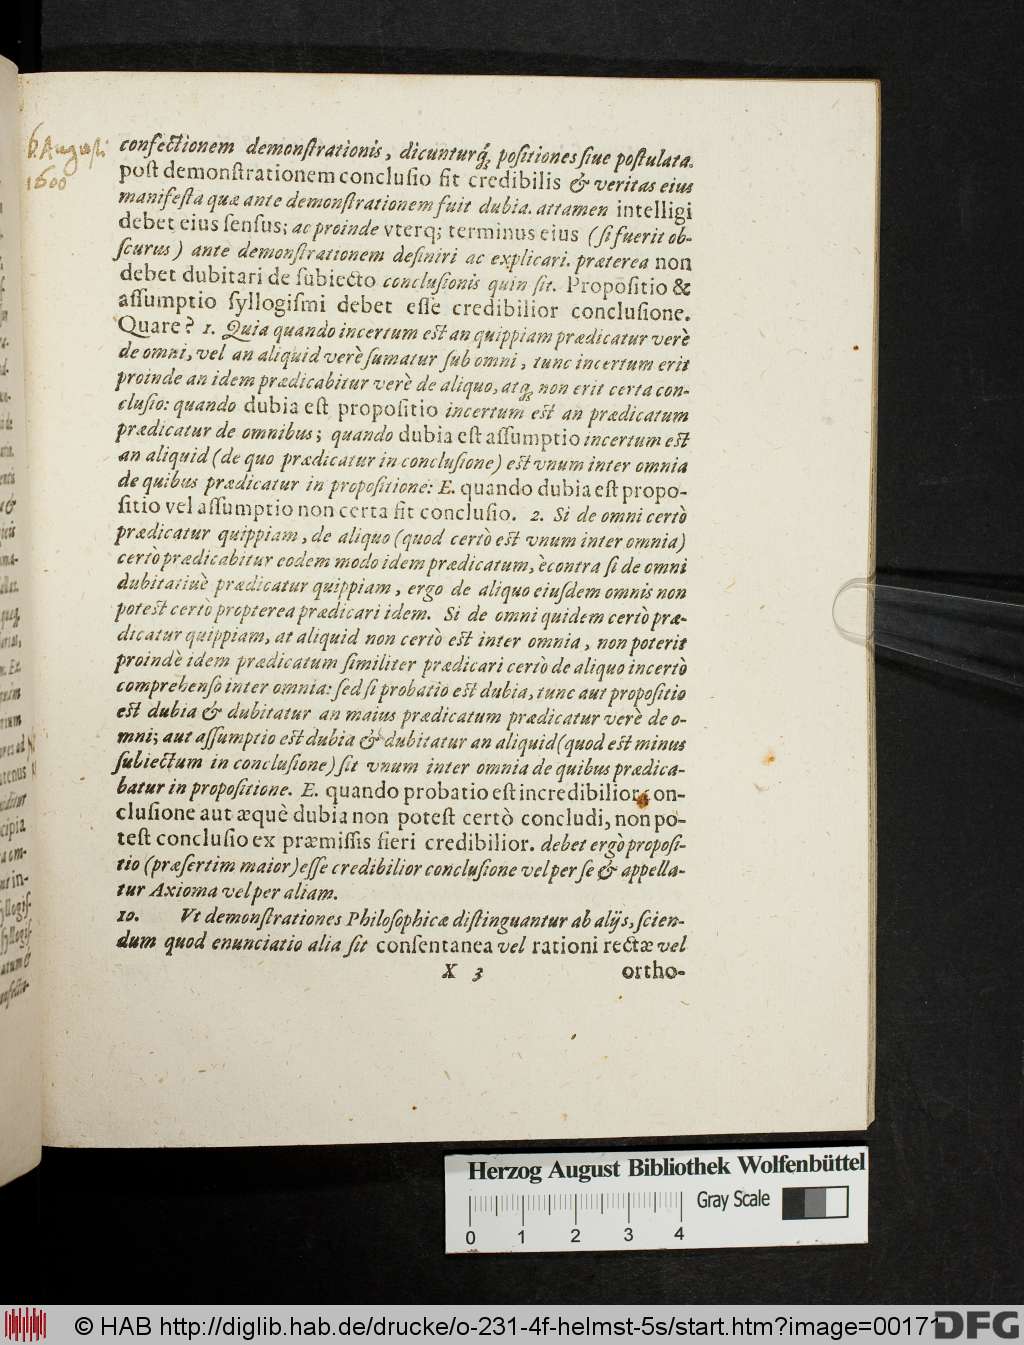 6. Augusti
1600
confectionem demonſtrationis, dicunturq́; poſitiones ſiue poſtulata.
poſt demonſtrationem concluſio fit credibilis & veritas eius
manifeſta quæ ante demonſtrationem fuit dubia. attamen intelligi
debet eius ſenſus; ac proinde vterq; terminus eius (ſi fuerit ob-
ſcurus) ante demonſtrationem definiri ac explicari. præterea non
debet dubitari de ſubiecto concluſionis quin ſit. Propoſitio &
aſſumptio ſyllogiſmi debet eſſe credibilior concluſione.
Quare? 1. Quia quando incertum eſt an quippiam prædicatur verè
de omni, vel an aliquid verè ſumatur ſub omni, tunc incertum erit
proinde an idem prædicabitur verè de aliquo, atq; non erit certa con-
cluſio: quando dubia eſt propoſitio incertum eſt an prædicatum
prædicatur de omnibus; quando dubia eſt aſſumptio incertum eſt
an aliquid (de quo prædicatur in concluſione) eſt vnum inter omnia
de quibus prædicatur in propoſitione: E. quando dubia eſt propo-
ſitio vel aſſumptio non certa fit concluſio. 2. Si de omni certò
prædicatur quippiam, de aliquo (quod certò eſt vnum inter omnia)
certò prædicabitur eodem modo idem prædicatum, ècontra ſi de omni
dubitatiuè prædicatur quippiam, ergo de aliquo eiuſdem omnis non
poteſt certò propterea prædicari idem. Si de omni quidem certò præ-
dicatur quippiam, at aliquid non certò eſt inter omnia, non poterit
proindè idem prædicatum ſimiliter prædicari certò de aliquo incertò
comprehenſo inter omnia: ſed ſi probatio eſt dubia, tunc aut propoſitio
eſt dubia & dubitatur an maius prædicatum prædicatur verè de o-
mni; aut aſſumptio eſt dubia & dubitatur an aliquid (quod eſt minus
ſubiectum in concluſione) ſit vnum inter omnia de quibus prædica-
batur in propoſitione. E. quando probatio eſt incredibilior con-
cluſione aut æquè dubia non poteſt certò concludi, non po-
teſt concluſio ex præmiſſis fieri credibilior. debet ergò propoſi-
tio (præſertim maior) eſſe credibilior concluſione vel per ſe & appella-
tur Axioma vel per aliam.
10. Vt demonſtrationes Philoſophicæ diſtinguantur ab alijs, ſcien-
dum quod enunciatio alia ſit conſentanea vel rationi rectæ vel
X 3 ortho-
Herzog August Bibliothek Wolfenbüttel
Gray Scale
0 1 2 3 4
© HAB http://diglib.hab.de/drucke/o-231-4f-helmst-5s/start.htm?image=00171
DFG